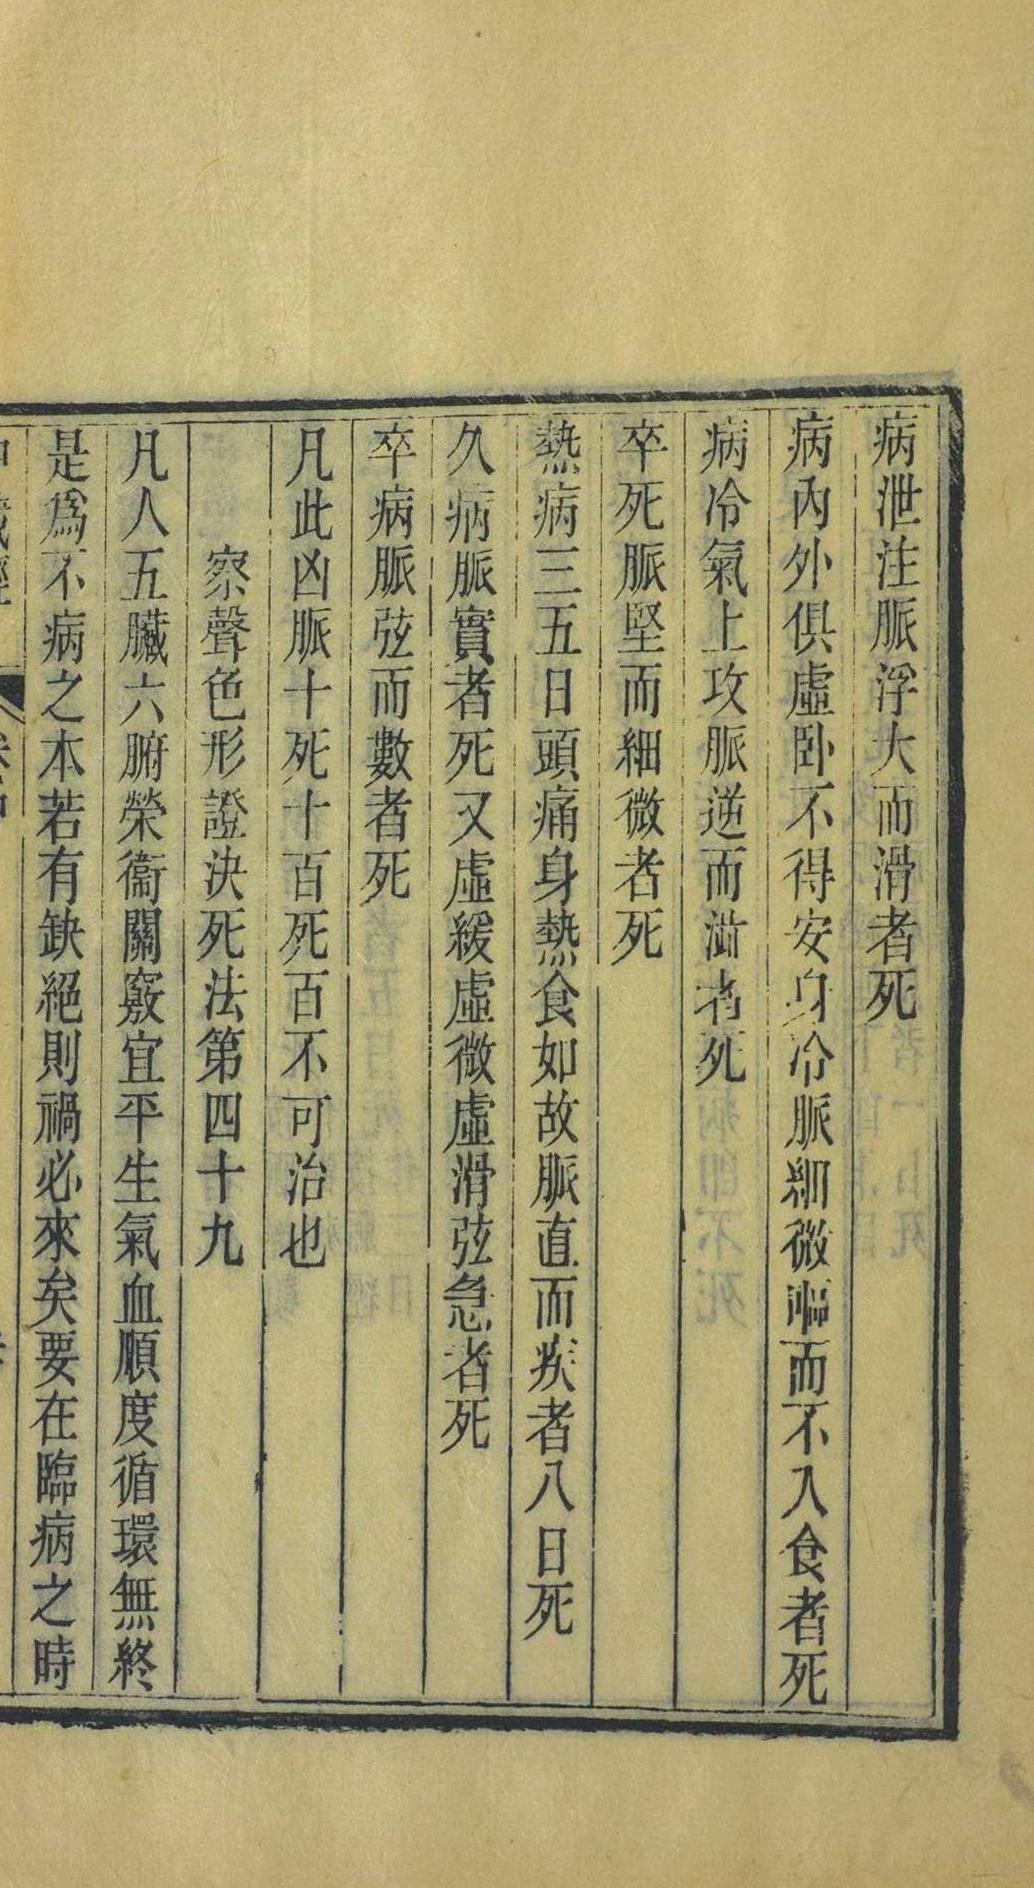 病泄注脈浮大而滑者死
病內外俱虛卧不得安身冷脈細微嘔而不入食者死
病冷氣上攻脈逆而澁者死
卒死脈堅而細微者死
熱病三五日頭痛身熱食如故脈直而疾者八日死
久病脈實者死又虛緩虛微虛滑弦急者死
卒病脈弦而數者死
凡此凶脈十死十百死百不可治也
察聲色形證決死法第四十九
凡人五臟六腑榮衞關竅宜平生氣血順度循環無終
是爲不病之本若有缺絕則禍必來矣要在臨病之時